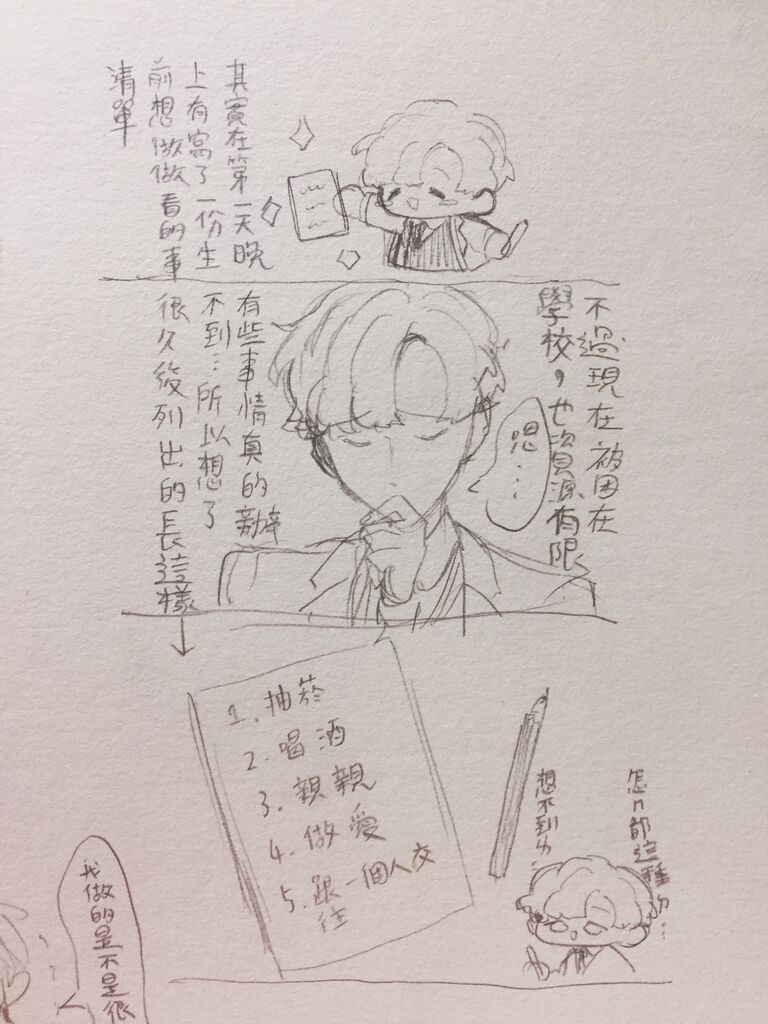 其實在第一天晚
上有寫了一份生
前想做做看的事
清單
不過現在被困在
學校，也資源有限
嗯…
有些事情真的辦
不到…所以想了
很久後列出的長這樣
1. 抽菸
2. 喝酒
3. 親親
4. 做愛
5. 跟一個人交
往
怎ㄇ都這種ㄉ…
想不到ㄌ…
我做的是不是很